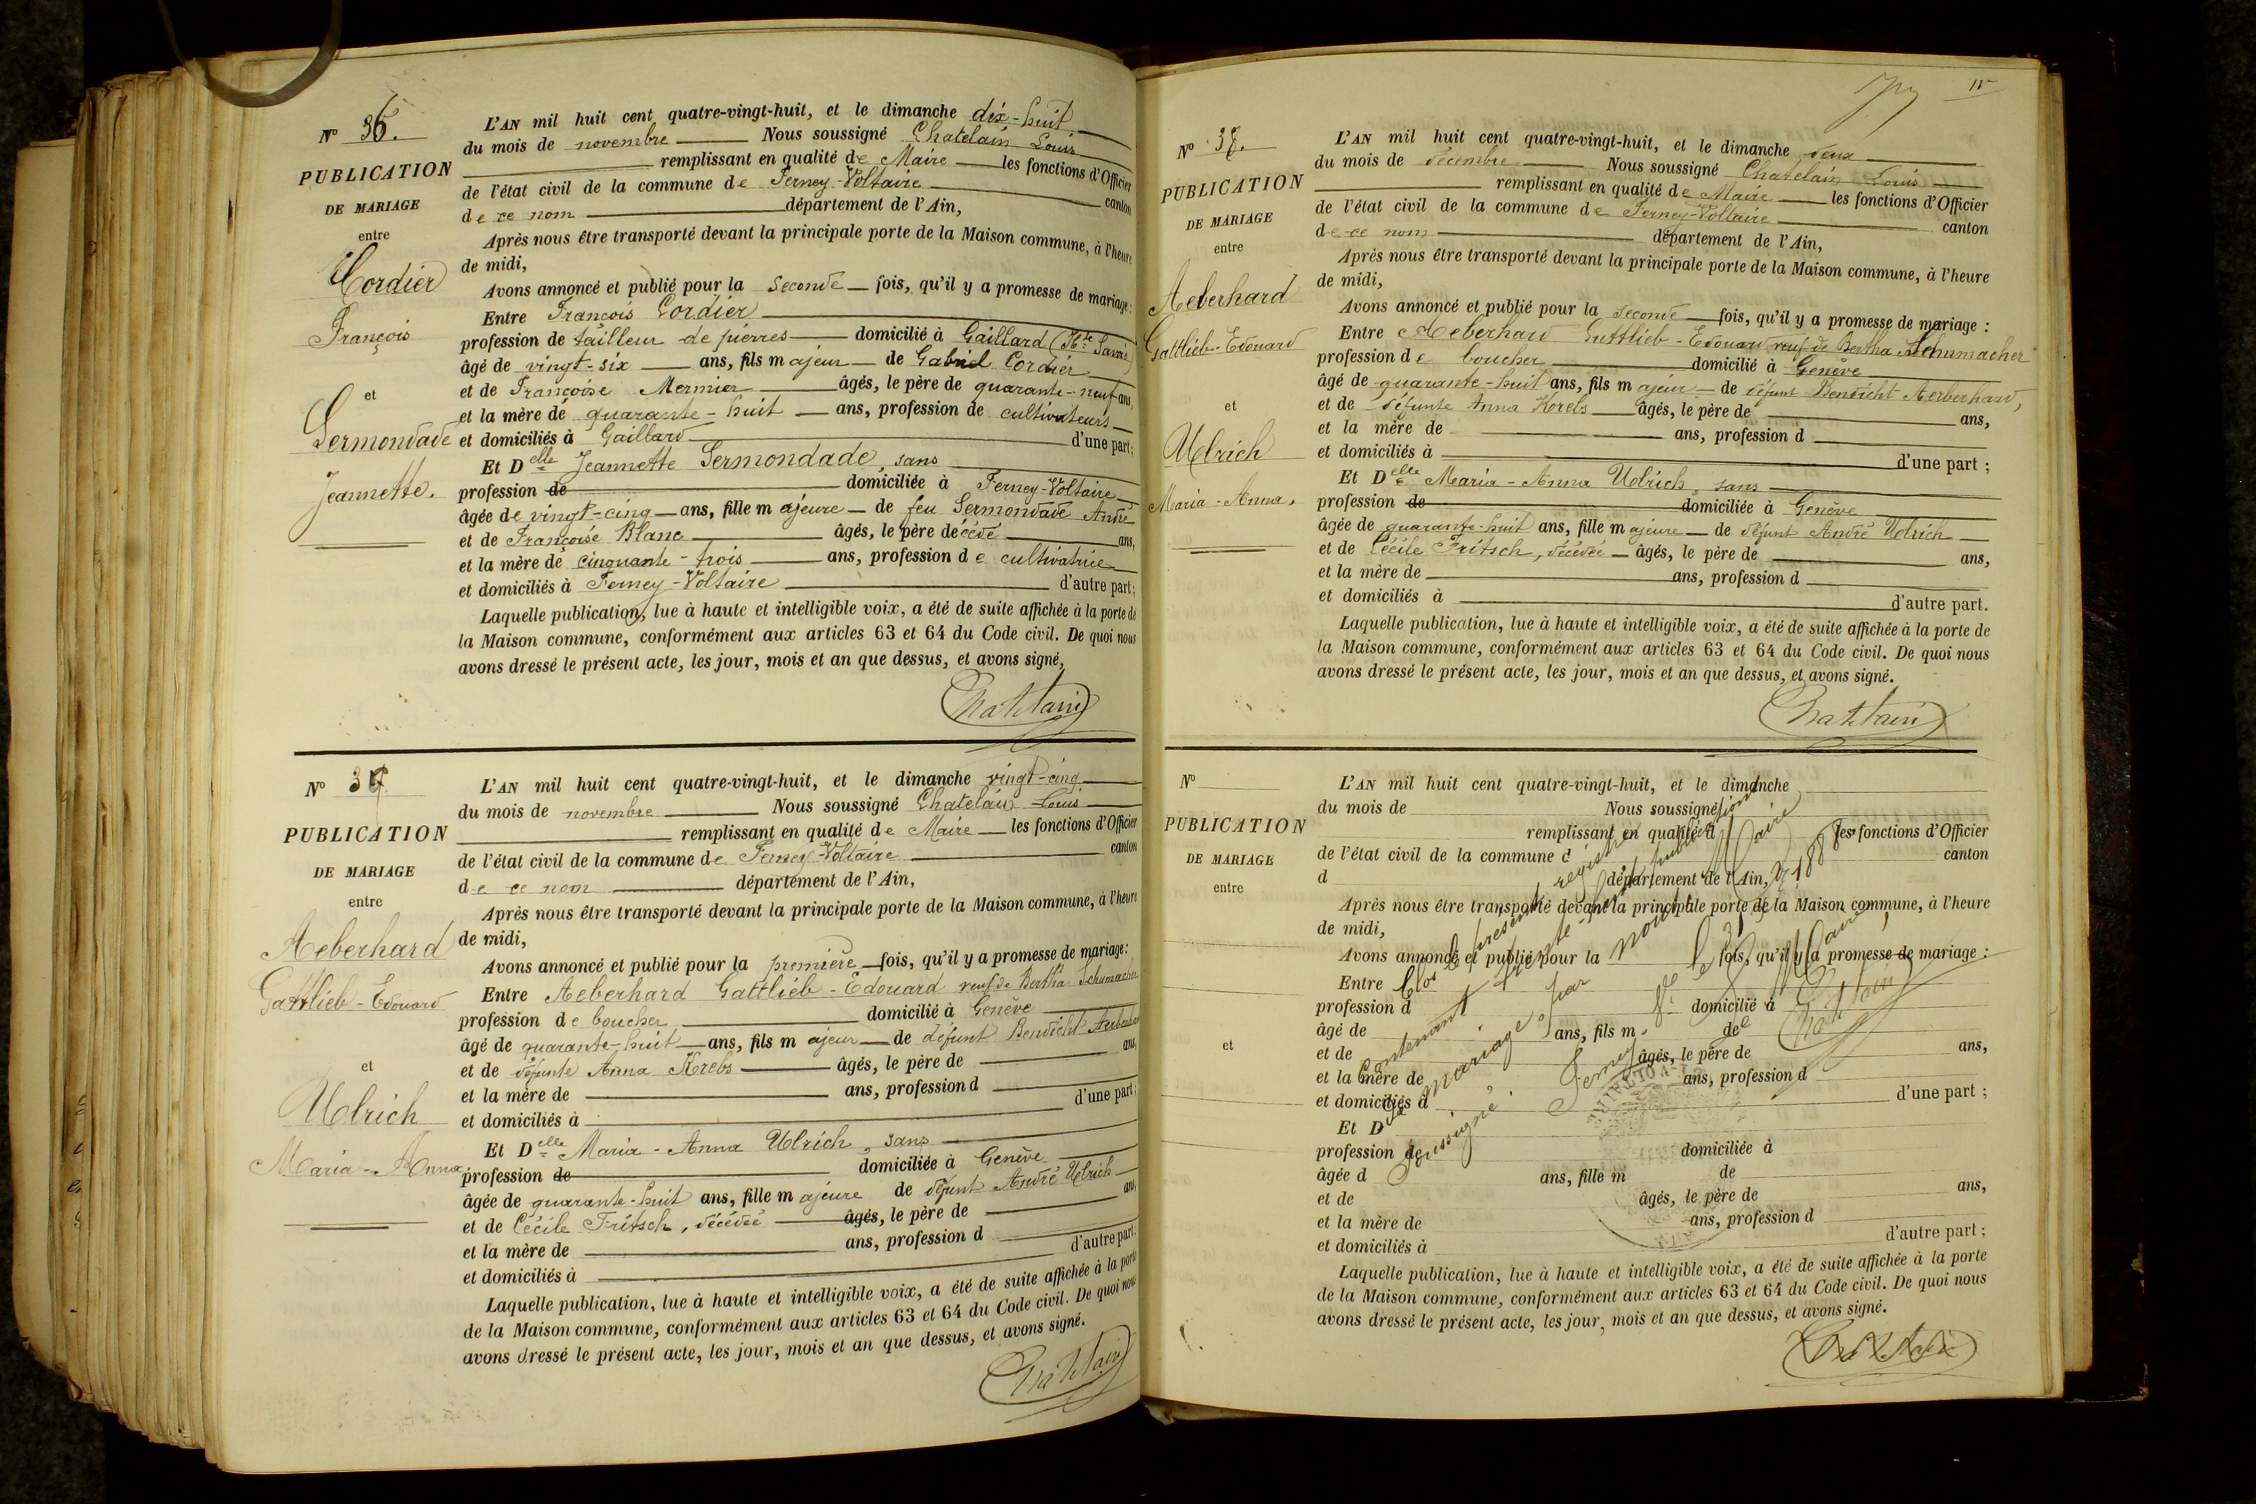 N° 36.
PUBLICATION
DE MARIAGE
entre
Cordier
François
et
Sermondade
Jeannette.
L'AN mil huit cent quatre-vingt-huit, et le dimanche dix-huit
du mois de novembre Nous soussigné Chatelain Louis
remplissant en qualité de Maire les fonctions d'Officier
de l'état civil de la commune de Ferney-Voltaire canton
de ce nom département de l'Ain,
Après nous être transporté devant la principale porte de la Maison commune, à l'heure
de midi,
Avons annoncé et publié pour la seconde fois, qu'il y a promesse de mariage :
Entre François Cordier
profession de tailleur de pierres domicilié à Gaillard (Hte Savoie)
âgé de vingt-six ans, fils majeur de Gabriel Cordier
et de Françoise Mermier âgés, le père de quarante-neuf ans,
et la mère de quarante-huit ans, profession de cultivateurs
et domiciliés à Gaillard d'une part;
Et Delle Jeannette Sermondade, sans
profession de domiciliée à Ferney-Voltaire
âgée de vingt-cinq ans, fille majeure de feu Sermondade André
et de Françoise Blanc âgés, le père décédé ans,
et la mère de cinquante-trois ans, profession de cultivatrice
et domiciliés à Ferney-Voltaire d'autre part;
Laquelle publication, lue à haute et intelligible voix, a été de suite affichée à la porte de
la Maison commune, conformément aux articles 63 et 64 du Code civil. De quoi nous
avons dressé le présent acte, les jour, mois et an que dessus, et avons signé,
Chatelain
N° 37
PUBLICATION
DE MARIAGE
entre
Aeberhard
Gattlieb-Edouard
et
Ulrich
Maria-Anna,
L'AN mil huit cent quatre-vingt-huit, et le dimanche vingt-cinq
du mois de novembre Nous soussigné Chatelain Louis
remplissant en qualité de Maire les fonctions d'Officier
de l'état civil de la commune de Ferney-Voltaire canton
de ce nom département de l'Ain,
Après nous être transporté devant la principale porte de la Maison commune, à l'heure
de midi,
Avons annoncé et publié pour la première fois, qu'il y a promesse de mariage:
Entre Aeberhard Gattlieb-Edouard veuf de Bertha Schumacher
profession de boucher domicilié à Genève
âgé de quarante-huit ans, fils majeur de défunt Bendicht Aeberhard
et de défunte Anna Krebs âgés, le père de ans,
et la mère de ans, profession d
et domiciliés à d'une part;
Et Delle Maria-Anna Ulrich, sans
profession de domiciliée à Genève
âgée de quarante-huit ans, fille majeure de défunt André Ulrich
et de Cécile Fritsch, décédée âgés, le père de ans,
et la mère de ans, profession d
et domiciliés à d'autre part;
Laquelle publication, lue à haute et intelligible voix, a été de suite affichée à la porte
de la Maison commune, conformément aux articles 63 et 64 du Code civil. De quoi nous
avons dressé le présent acte, les jour, mois et an que dessus, et avons signé.
Chatelain
N° 38.
PUBLICATION
DE MARIAGE
entre
Aeberhard
Gattlieb-Edouard
et
Ulrich
Maria-Anna,
L'AN mil huit cent quatre-vingt-huit, et le dimanche deux
du mois de décembre Nous soussigné Chatelain Louis
remplissant en qualité de Maire les fonctions d'Officier
de l'état civil de la commune de Ferney-Voltaire canton
de ce nom département de l'Ain,
Après nous être transporté devant la principale porte de la Maison commune, à l'heure
de midi,
Avons annoncé et publié pour la seconde fois, qu'il y a promesse de mariage :
Entre Aeberhard Gottlieb-Edouard veuf de Bertha Schumacher
profession de boucher domicilié à Genève
âgé de quarante-huit ans, fils majeur de défunt Bendicht Aerberhard,
et de défunte Anna Korels âgés, le père de ans,
et la mère de ans, profession d
et domiciliés à d'une part ;
Et Delle Maria-Anna Ulrich, sans
profession de domiciliée à Genève
âgée de quarante-huit ans, fille majeure de défunt André Ulrich
et de Cécile Fritsch, décédée âgés, le père de ans,
et la mère de ans, profession d
et domiciliés à d'autre part.
Laquelle publication, lue à haute et intelligible voix, a été de suite affichée à la porte de
la Maison commune, conformément aux articles 63 et 64 du Code civil. De quoi nous
avons dressé le présent acte, les jour, mois et an que dessus, et avons signé.
Chatelain
N°
PUBLICATION
DE MARIAGE
entre
et
L'AN mil huit cent quatre-vingt-huit, et le dimanche
du mois de Nous soussigné
remplissant en qualité d les fonctions d'Officier
de l'état civil de la commune d canton
d département de l'Ain,
Après nous être transporté devant la principale porte de la Maison commune, à l'heure
de midi,
Avons annoncé et publié pour la fois, qu'il y a promesse de mariage :
Entre
profession d domicilié à
âgé de ans, fils m de
et de âgés, le père de ans,
et la mère de ans, profession d
et domiciliés à d'une part ;
Et D
profession de domiciliée à
âgée d ans, fille m de
et de âgés, le père de ans,
et la mère de ans, profession d
et domiciliés à d'autre part ;
Laquelle publication, lue à haute et intelligible voix, a été de suite affichée à la porte
de la Maison commune, conformément aux articles 63 et 64 du Code civil. De quoi nous
avons dressé le présent acte, les jour, mois et an que dessus, et avons signé.
Clos le présent registre
contenant trente-huit publications
de mariage, par nous Maire
soussigné.
Ferney le 31 Xbre 1888
Le Maire,
Chatelain
Chatelain